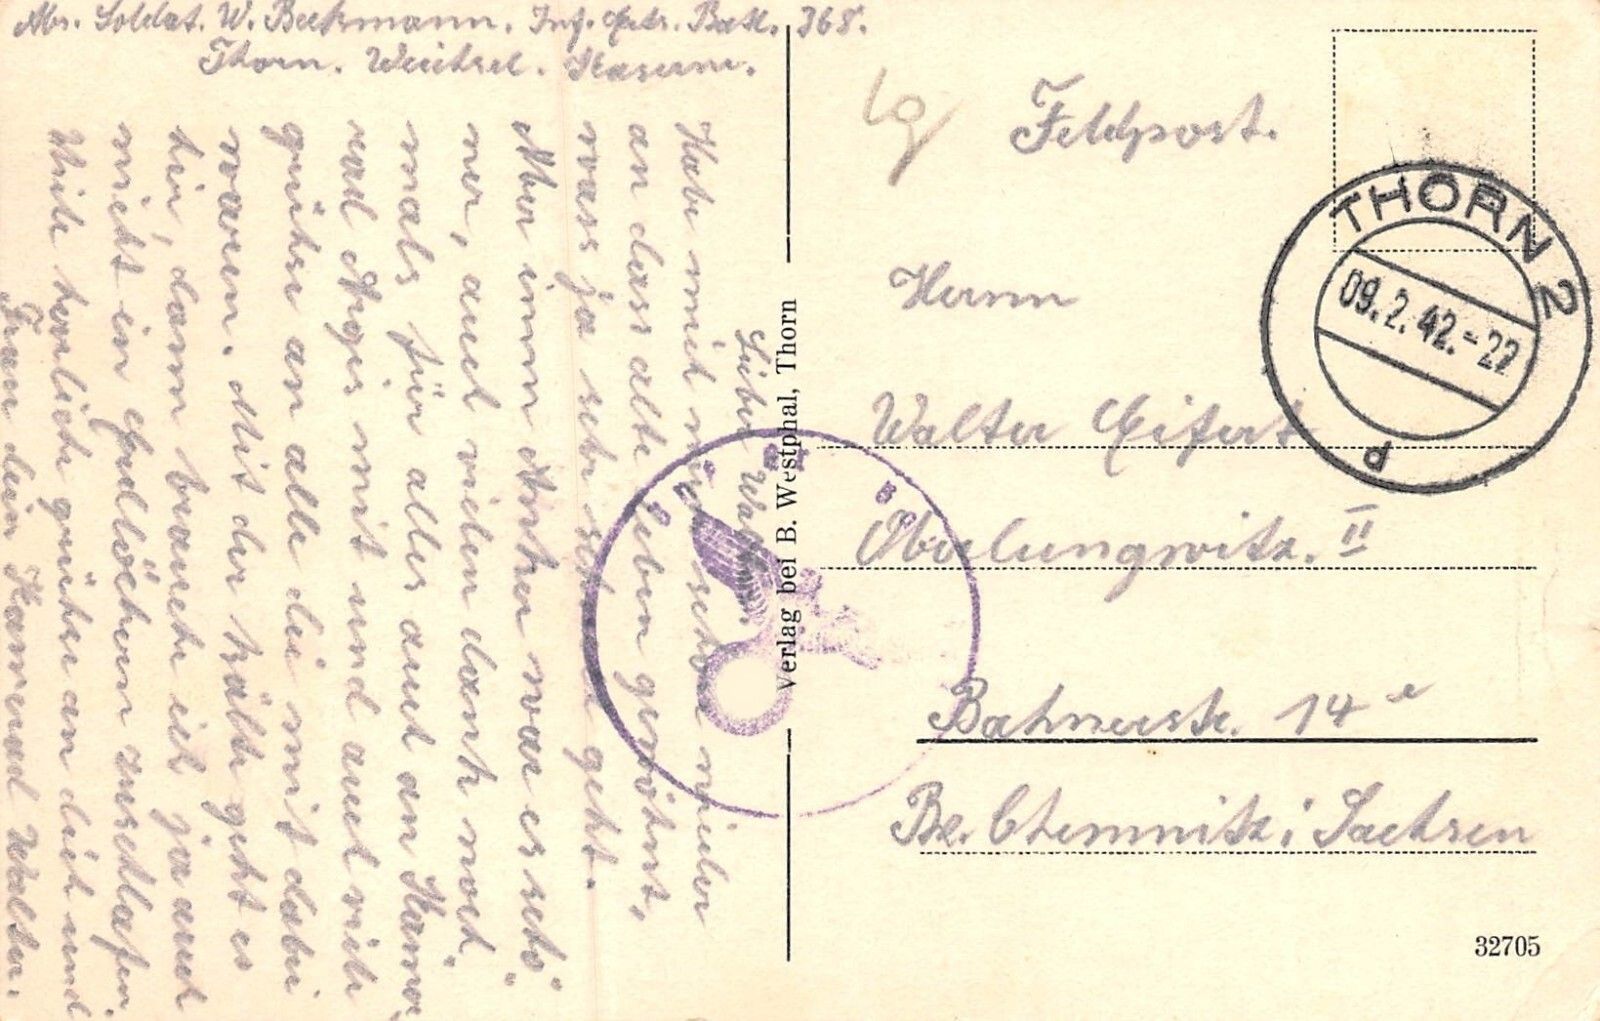 Abs. Soldat. W. Beekmann. Inf. Ers. Batl. 368.
Thorn. Weichsel. Kaserne.
Lieber Walter
Habe mich nun schon wieder
an dass alte Leben gewöhnt,
wass ja sehr schwer geht.
Aber immer war es sehr
auch vielen dank noch
mals für alles auch an Kamer
rad und auch viele
grüße an alle die mit dabei
waren. Mit der kälte geht es
hir, dann brauche ich ja auch
nicht in zuschlafen.
Viele herzliche grüße an dich und
Frau dein Kamerad Walter.
Verlag bei B. Westphal, Thorn
Feldpost.
THORN 2
09.2.42.-22
d
Herrn
Walter Eifert
Oberlungwitz. II
14 e
Bz. Chemnitz i Sachsen
32705